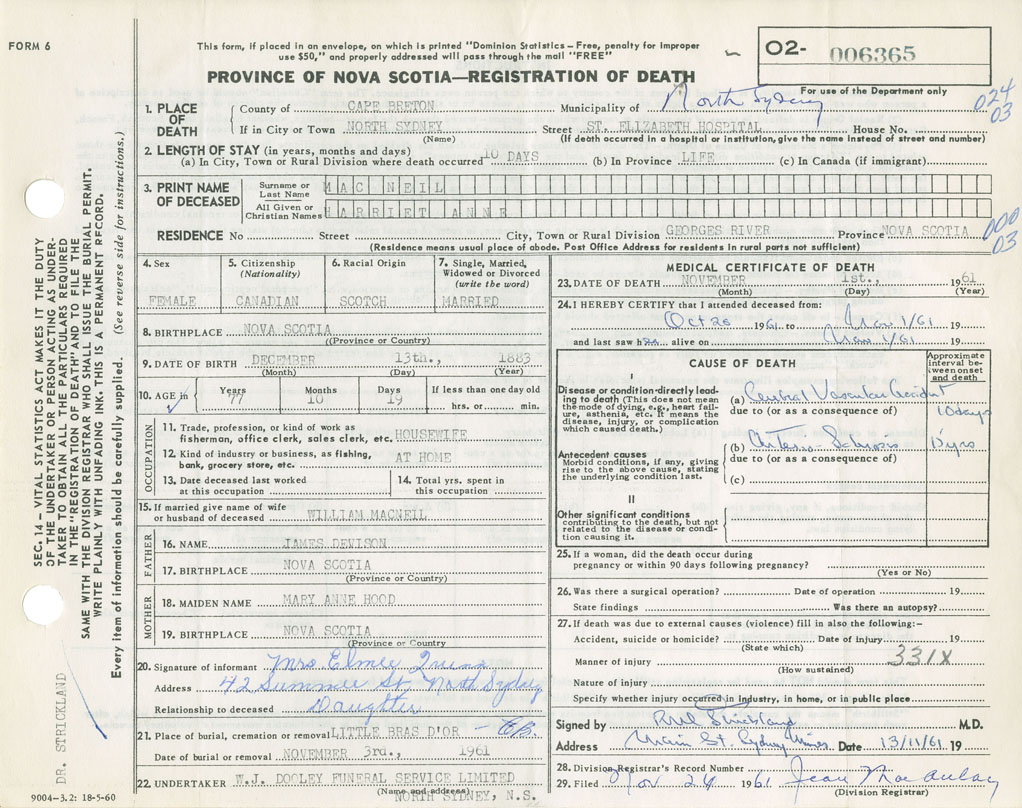 FORM 6
This form, if placed in an envelope, on which is printed "Dominion Statistics – Free, penalty for improper
use $50," and properly addressed will pass through the mail "FREE"
O2- 006365
PROVINCE OF NOVA SCOTIA—REGISTRATION OF DEATH
For use of the Department only
024
03
1. PLACE OF DEATH
County of CAPE BRETON Municipality of North Sydney
If in City or Town NORTH SYDNEY Street ST. ELIZABETH HOSPITAL House No.
(Name) (If death occurred in a hospital or institution, give the name instead of street and number)
2. LENGTH OF STAY (in years, months and days)
(a) In City, Town or Rural Division where death occurred 10 DAYS (b) In Province LIFE (c) In Canada (if immigrant)
3. PRINT NAME OF DECEASED
Surname or Last Name MAC NEIL
All Given or Christian Names HARRIET ANNE
000
03
RESIDENCE No Street City, Town or Rural Division GEORGES RIVER Province NOVA SCOTIA
(Residence means usual place of abode. Post Office Address for residents in rural parts not sufficient)
4. Sex
FEMALE
5. Citizenship
(Nationality)
CANADIAN
6. Racial Origin
SCOTCH
7. Single, Married,
Widowed or Divorced
(write the word)
MARRIED
8. BIRTHPLACE NOVA SCOTIA
((Province or Country)
9. DATE OF BIRTH DECEMBER 13th., 1883
(Month) (Day) (Year)
10. AGE in Years Months Days If less than one day old
77 10 19 hrs. or min.
OCCUPATION
11. Trade, profession, or kind of work as
fisherman, office clerk, sales clerk, etc. HOUSEWIFE
12. Kind of industry or business, as fishing,
bank, grocery store, etc. AT HOME
13. Date deceased last worked
at this occupation
14. Total yrs. spent in
this occupation
15. If married give name of wife
or husband of deceased WILLIAM MACNEIL
FATHER
16. NAME JAMES DEVISON
17. BIRTHPLACE NOVA SCOTIA
(Province or Country)
MOTHER
18. MAIDEN NAME MARY ANNE HOOD
19. BIRTHPLACE NOVA SCOTIA
(Province or Country
20. Signature of informant Mrs Elmer Quinn
Address 42 Summer St North Sydney
Relationship to deceased Daughter
21. Place of burial, cremation or removal LITTLE BRAS D'OR – CB.
Date of burial or removal NOVEMBER 3rd., 1961
22. UNDERTAKER W.J. DOOLEY FUNERAL SERVICE LIMITED
(Name and address)
NORTH SYDNEY, N.S.
MEDICAL CERTIFICATE OF DEATH
23. DATE OF DEATH NOVEMBER 1st., 1961
(Month) (Day) (Year)
24. I HEREBY CERTIFY that I attended deceased from:
Oct 26 1961 to Nov 1/61 19
and last saw her alive on Nov 1/61 19
CAUSE OF DEATH
Approximate
interval be-
tween onset
and death
I
Disease or condition directly lead-
ing to death (This does not mean
the mode of dying, e.g., heart fail-
ure, asthenia, etc. It means the
disease, injury, or complication
which caused death.)
(a) Cerebral Vascular Accident 10 days
due to (or as a consequence of)
Antecedent causes
Morbid conditions, if any, giving
rise to the above cause, stating
the underlying condition last.
(b) Arterio-Sclerosis 15 yrs
due to (or as a consequence of)
(c)
II
Other significant conditions
contributing to the death, but not
related to the disease or condi-
tion causing it.
25. If a woman, did the death occur during
pregnancy or within 90 days following pregnancy?
(Yes or No)
26. Was there a surgical operation? Date of operation 19
State findings Was there an autopsy?
27. If death was due to external causes (violence) fill in also the following:–
Accident, suicide or homicide? Date of injury 19
(State which)
Manner of injury 331X
(How sustained)
Nature of injury
Specify whether injury occurred in industry, in home, or in public place
Signed by Strickland M.D.
Address Main St. Sydney Mines Date 13/11/61 19
28. Division Registrar's Record Number
29. Filed Nov 24 1961 Jean MacAulay
(Division Registrar)
SEC. 14 – VITAL STATISTICS ACT MAKES IT THE DUTY
OF THE UNDERTAKER OR PERSON ACTING AS UNDER-
TAKER TO OBTAIN ALL THE PARTICULARS REQUIRED
IN THE "REGISTRATION OF DEATH" AND TO FILE THE
SAME WITH THE DIVISION REGISTRAR WHO SHALL ISSUE THE BURIAL PERMIT.
WRITE PLAINLY WITH UNFADING INK. THIS IS A PERMANENT RECORD.
Every item of information should be carefully supplied. (See reverse side for instructions.)
DR. STRICKLAND
9004–3.2: 18-5-60